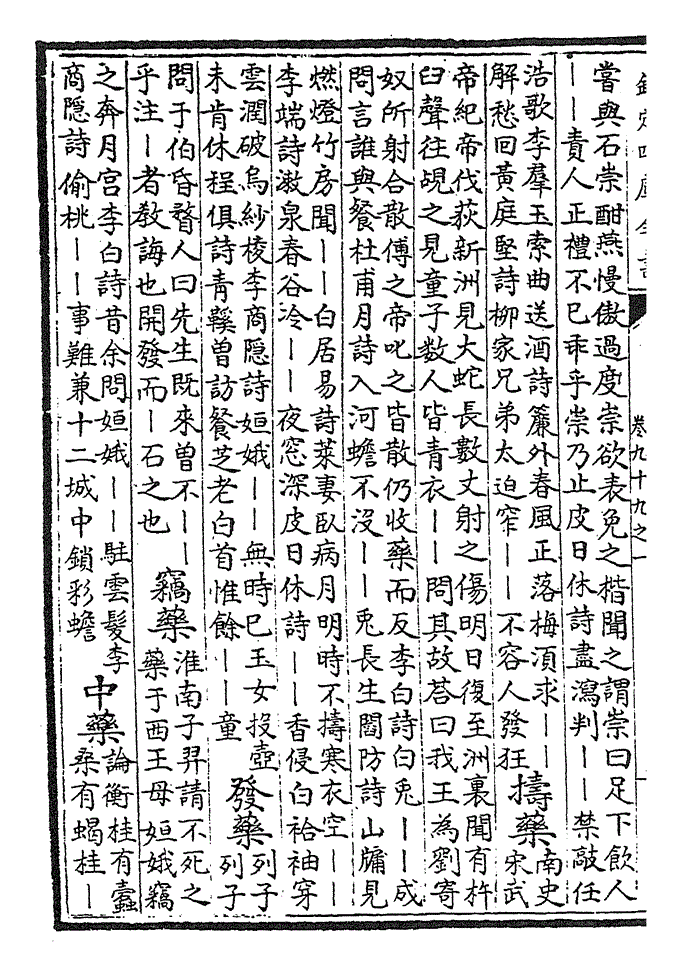 欽定四庫全書
卷九十九之一
嘗與石崇酣燕慢傲過度崇欲表免之楷聞之謂崇曰足下飲人
丨丨責人正禮不已乖乎崇乃止皮日休詩盡瀉判丨丨禁敲任
浩歌李羣玉索曲送酒詩簾外春風正落梅湏求丨丨
解愁回黃庭堅詩柳家兄弟太迫窄丨丨不容人發狂
擣藥
南史
宋武
帝紀帝伐荻新洲見大蛇長數丈射之傷明日復至洲裏聞有杵
臼聲往覘之見童子数人皆青衣丨丨問其故荅曰我王為劉寄
奴所射合散傅之帝叱之皆散仍收藥而反李白詩白兎丨丨成
問言誰與餐杜甫月詩入河蟾不沒丨丨兎長生閻防詩山牖見
燃燈竹房聞丨丨白居易詩萊妻臥病月明時不擣寒衣空丨丨
李端詩漱泉春谷冷丨丨夜窓深皮日休詩丨丨香侵白袷袖穿
雲潤破烏紗棱李商隐詩姮娥丨丨無時已玉女投壺
未肯休程俱詩青谿曽訪餐芝老白首惟餘丨丨童
發藥
列子
列子
問于伯昏瞀人曰先生既來曾不丨丨
乎注丨者敎誨也開發而丨石之也
竊藥
淮南子羿請不死之
藥于西王母姮娥竊
之奔月宮李白詩昔余問姮娥丨丨駐雲髪李
商隐詩偷桃丨丨事難兼十二城中鎖彩蟾
中藥
論衡桂有蠹
桑有蝎桂丨